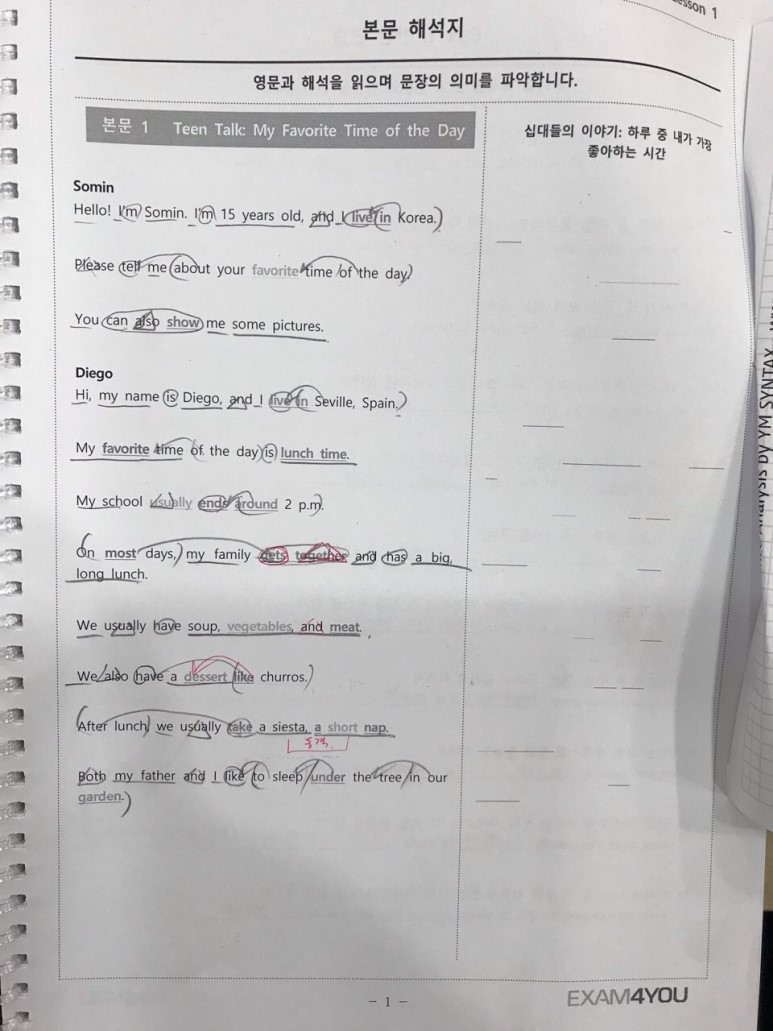 esson 1
본문 해석지
영문과 해석을 읽으며 문장의 의미를 파악합니다.
본문 1 Teen Talk: My Favorite Time of the Day
십대들의 이야기: 하루 중 내가 가장
좋아하는 시간
Somin
Hello! I'm Somin. I'm 15 years old, and I live in Korea.
Please tell me about your favorite time of the day.
You can also show me some pictures.
Diego
Hi, my name is Diego, and I live in Seville, Spain.
My favorite time of the day is lunch time.
My school usually ends around 2 p.m.
On most days, my family gets together and has a big,
long lunch.
We usually have soup, vegetables, and meat.
We also have a dessert like churros.
After lunch, we usually take a siesta, a short nap.
동격.
Both my father and I like to sleep under the tree in our
garden.
- 1 -
EXAM4YOU
BY YM SYNTAX